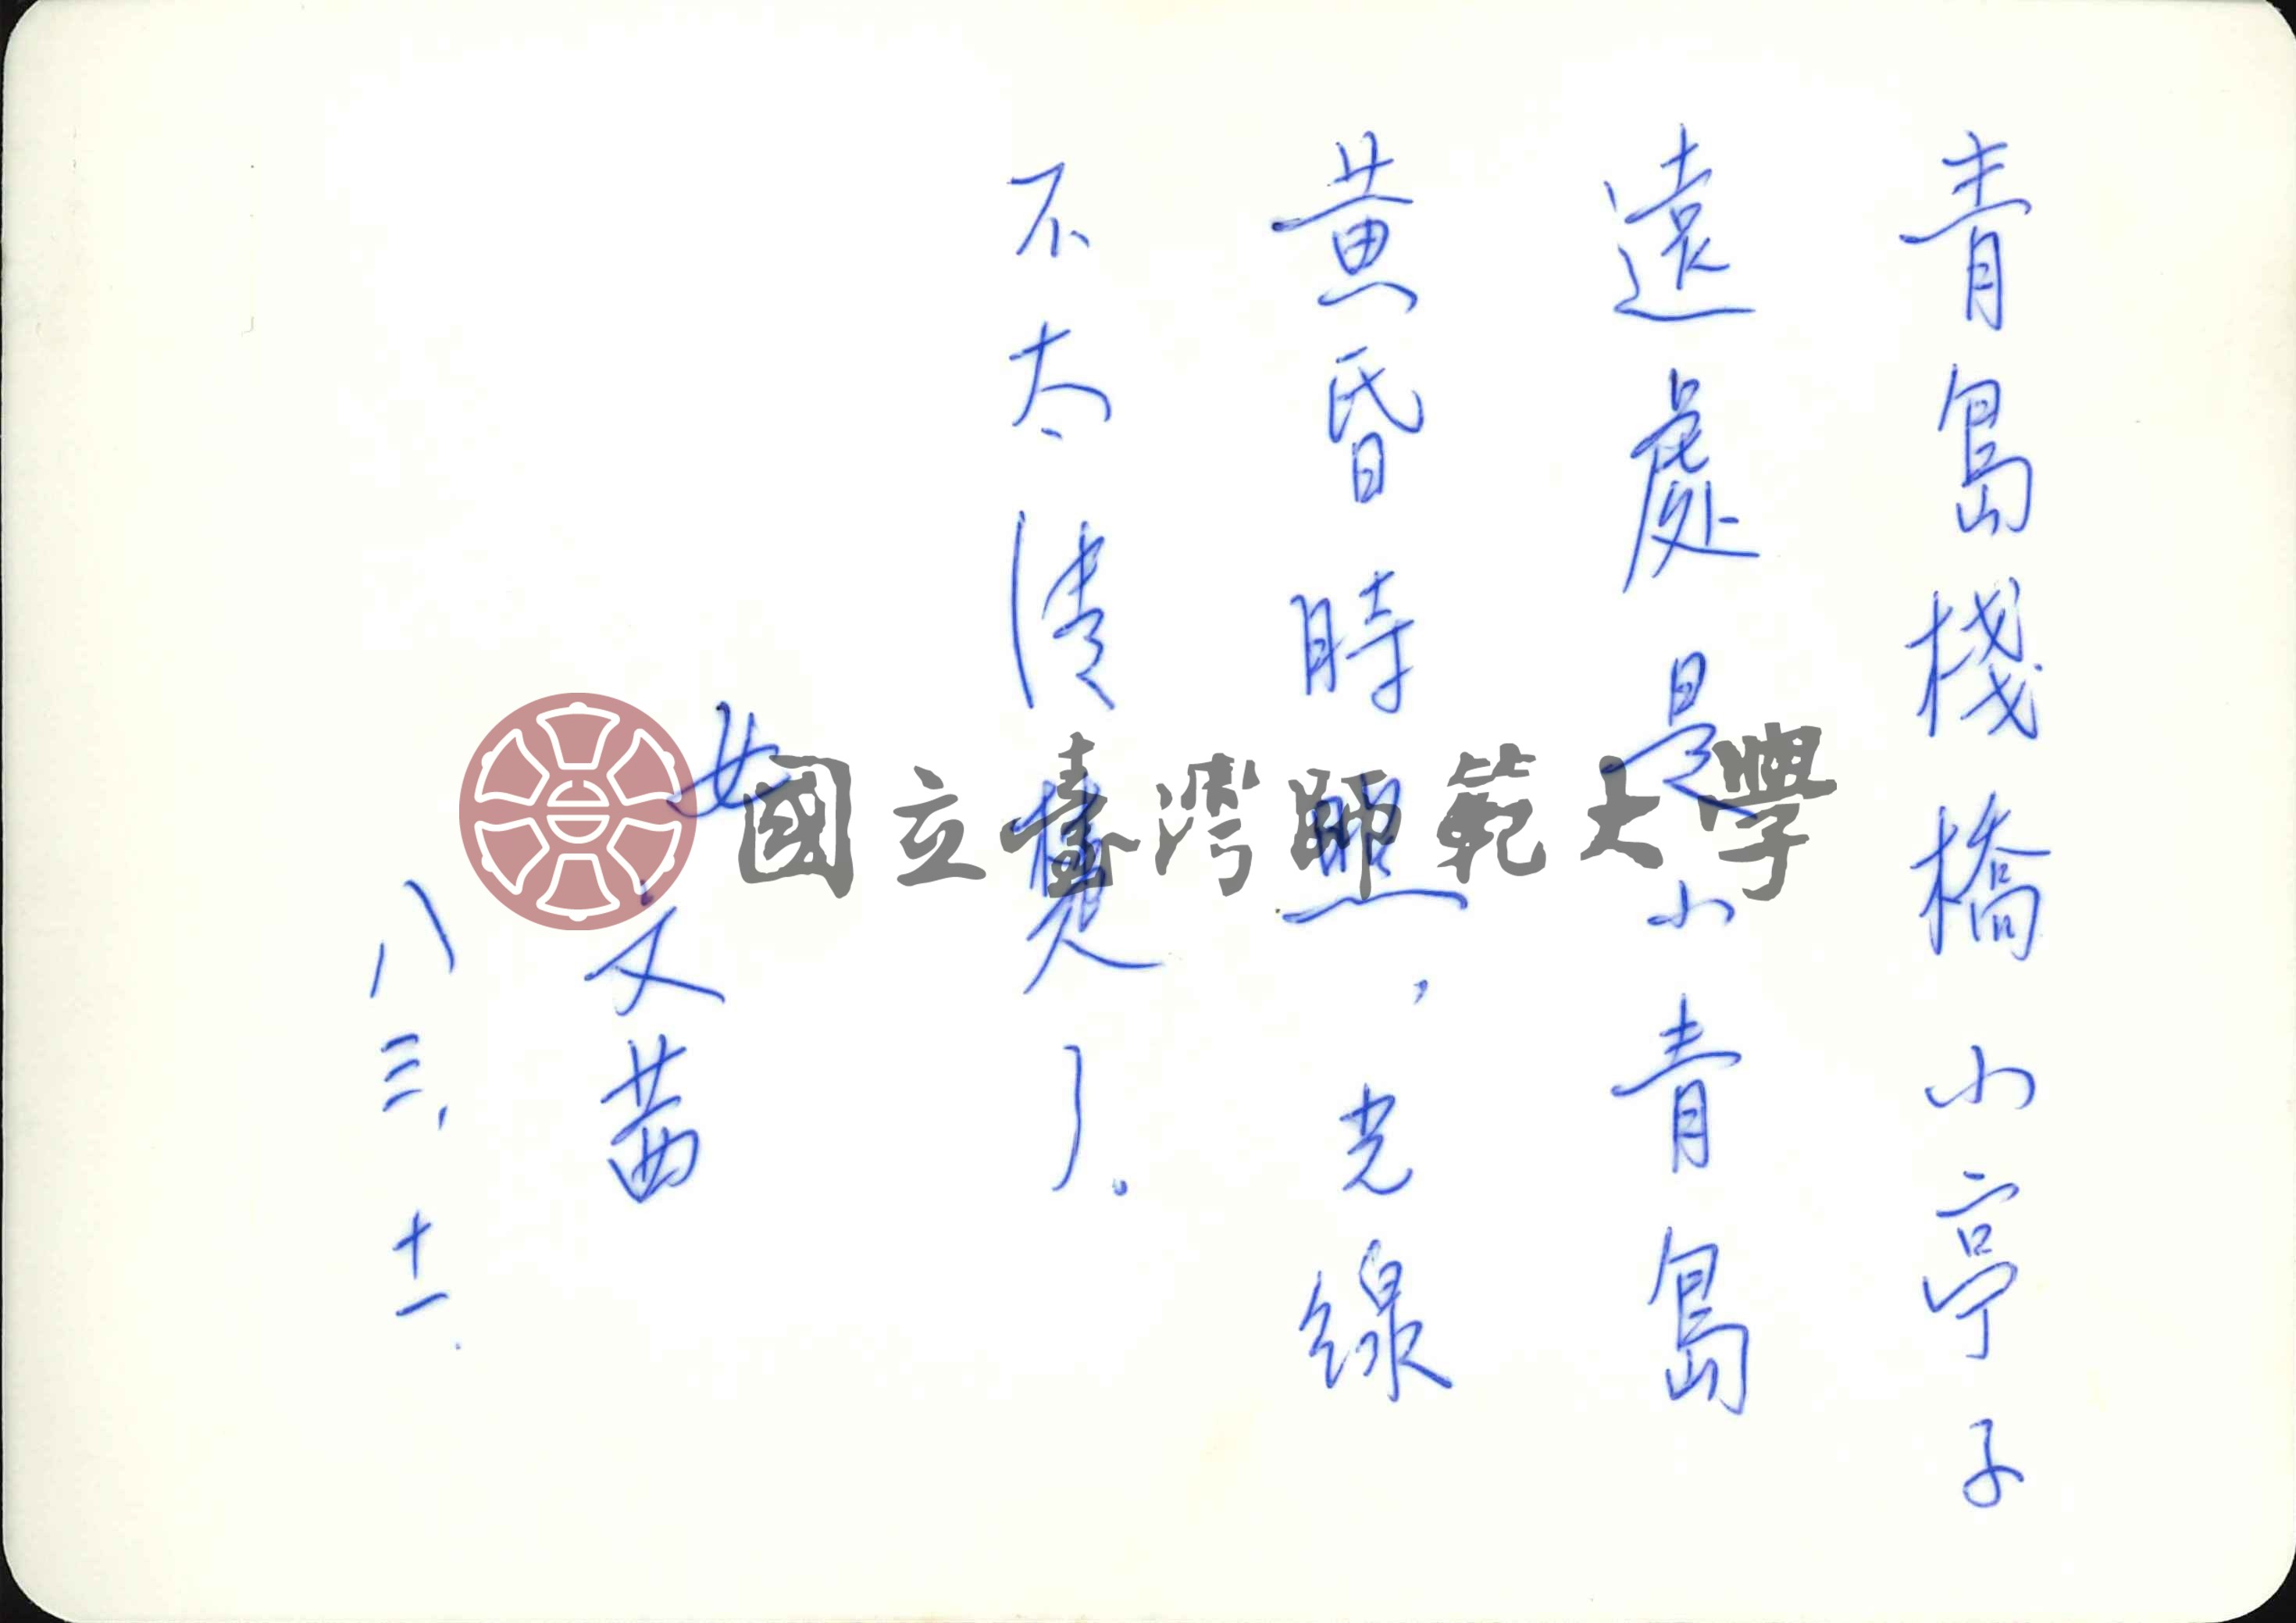 青島棧橋小亭子
遠處是小青島
黃昏時照，光線
不太清楚了.
女文茜
八三，十一.
國立臺灣師範大學